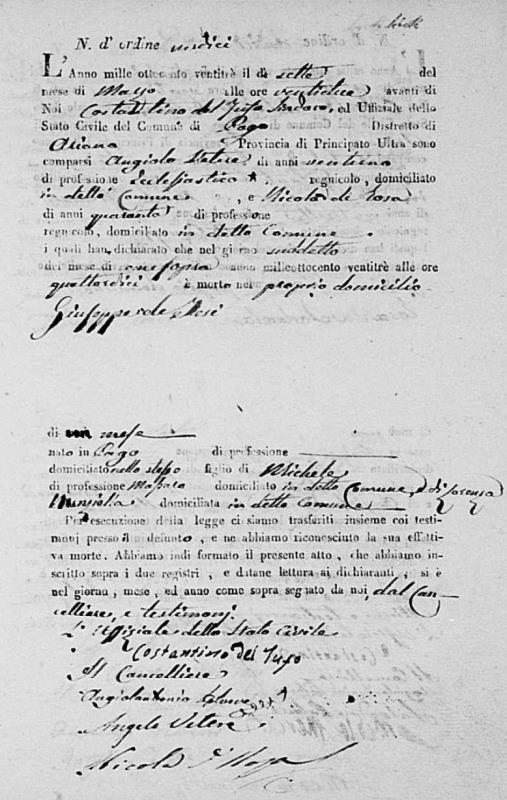 N. d' ordine undici
L'Anno mille ottocento ventitrè il dì sette del
mese di Maggio alle ore ventidue avanti di
Noi Costantino del Tufo Sindaco, ed Uffiziale dello
Stato Civile del Comune di Pago Distretto di
Ariano Provincia di Principato Ultra sono
comparsi Angiolo Vetere di anni ventuno
di professione Ecclesiastico regnicolo, domiciliato
in detto Comune, e Nicola de Rosa
di anni quaranta di professione
regnicolo, domiciliato in detto Comune
i quali han dichiarato che nel giorno suddetto
del mese di come sopra anno milleottocento ventitrè alle ore
quattordici è morto nel proprio domicilio
Giuseppe de
di un mese
nato in Pago di professione
domiciliato nello stesso figlio di Michele
di professione Massaro domiciliato in detto Comune, e di Lorenza
domiciliata in detto Comune
Per esecuzione della legge ci siamo trasferiti insieme coi testi-
monj presso il defunto, e ne abbiamo riconosciuto la sua effetti-
va morte. Abbiamo indi formato il presente atto, che abbiamo in-
scritto sopra i due registri, e datane lettura ai dichiaranti, si è
nel giorno, mese, ed anno come sopra segnato da noi, dal Can-
celliere, e testimonj.
L'Uffiziale dello Stato Civile
Costantino del Tufo
Il Cancelliere
Angiolantonio
Angelo Vetere
Nicola d' Rosa